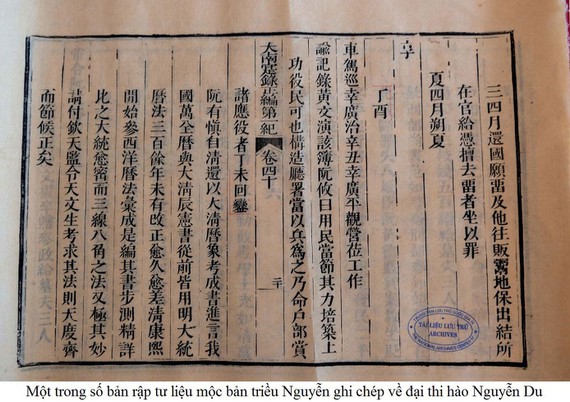 三四月還國願畱及他往販鬻地保出結所
在官給憑擅去畱者坐以罪
夏四月朔夏
享
丁酉
車駕巡幸廣治辛丑幸廣平觀營莅工作
諭記錄黃文演該簿阮攸曰用民當節其力培築上
功役民可也構造廳署當以兵爲之乃命戶部賞
大南寔錄正編第一紀 卷四十
諸應役者丁未回鑾
阮有愼自清還以大清曆象考成書進言我
國萬全曆與大清辰憲書從前皆用明大統
曆法三百餘年未有改正愈久愈差清康熙
開始參西洋曆法彙成是編其書步測精詳
比之大統愈密而三線八角之法又極其妙
請付欽天監令天文生考求其法則天度齊
而節候正矣
TÀI LIỆU LƯU TRỮ
ARCHIVES
Một trong số bản rập tư liệu mộc bản triều Nguyễn ghi chép về đại thi hào Nguyễn Du